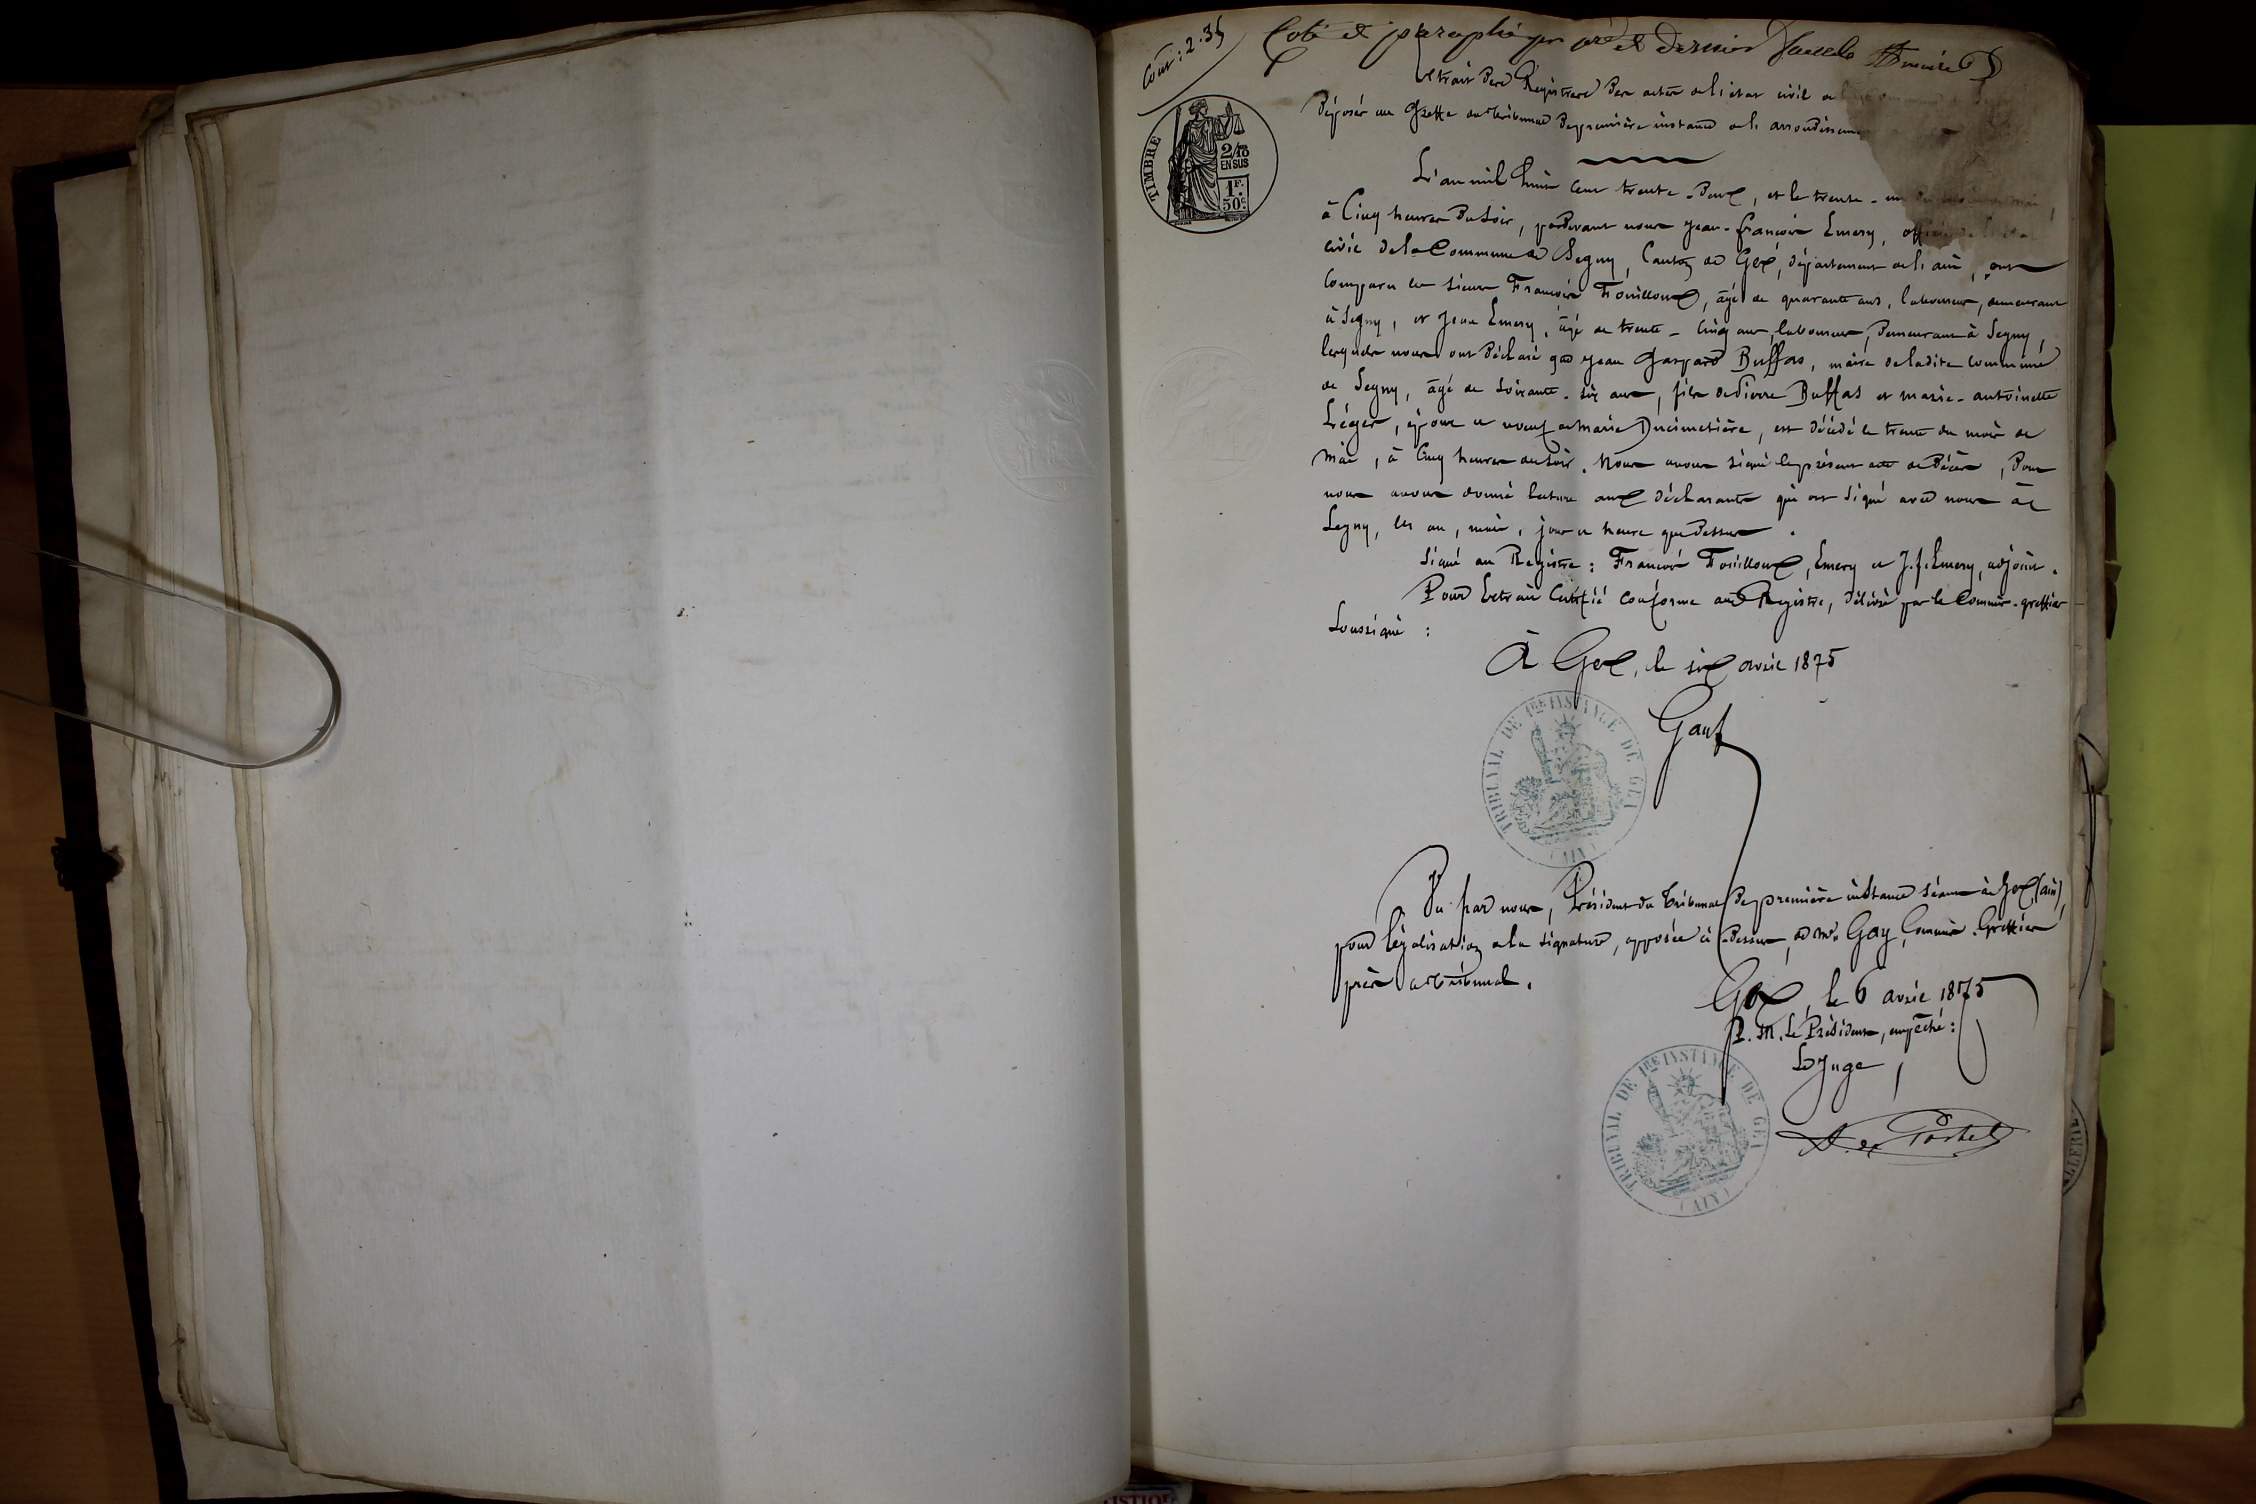 Coût : 2.35
Coté et paraphé par pre et dernier
Extrait des Registres des actes de l'état civil de
déposés au Greffe du Tribunal de première instance de l'arrondissement
TIMBRE
2/10
EN SUS
1F.
50c.
L'an mil huit cent trente-deux, et le trente-un du mois de mai,
à Cinq heures du soir, pardevant nous Jean-François Emery, officier de l'état
civil de la Commune de Segny, Canton de Gex, département de l'ain, ont
comparu les sieurs François Fouilloux, âgé de quarante ans, laboureur, demeurant
à Segny, et Jean Emery, âgé de trente-cinq ans, laboureur, demeurant à Segny,
lesquels nous ont déclaré que Jean Gaspard Buffas, maire de ladite commune
de Segny, âgé de soixante-six ans, fils de Pierre Buffas et marie-antoinette
Léger, époux en noeuf de marie Ducimetière, est décédé le trente du mois de
mai, à Cinq heures du soir. Nous avons signé le présent acte de décès, dont
nous avons donné lecture aux déclarants qui ont signé avec nous à
Segny, les an, mois, jour et heure que dessus.
Signé au Registre : François Fouilloux, Emery et J.f. Emery, adjoint.
Pour Extrait Certifié conforme au Registre, délivré par le Commis-greffier
Soussigné :
à Gex, le six avril 1875
TRIBUNAL DE 1RE INSTANCE DE GEX
(AIN)
Vu par nous, Président du Tribunal de première instance séant à Gex (ain)
pour légalisation de la signature, apposée ci-dessus, de Mr. Gay, Commis-Greffier
près ce tribunal.
Gex, le 6 avril 1875
P. M. Le Président, empêché :
Le Juge,
TRIBUNAL DE 1RE INSTANCE DE GEX
(AIN)